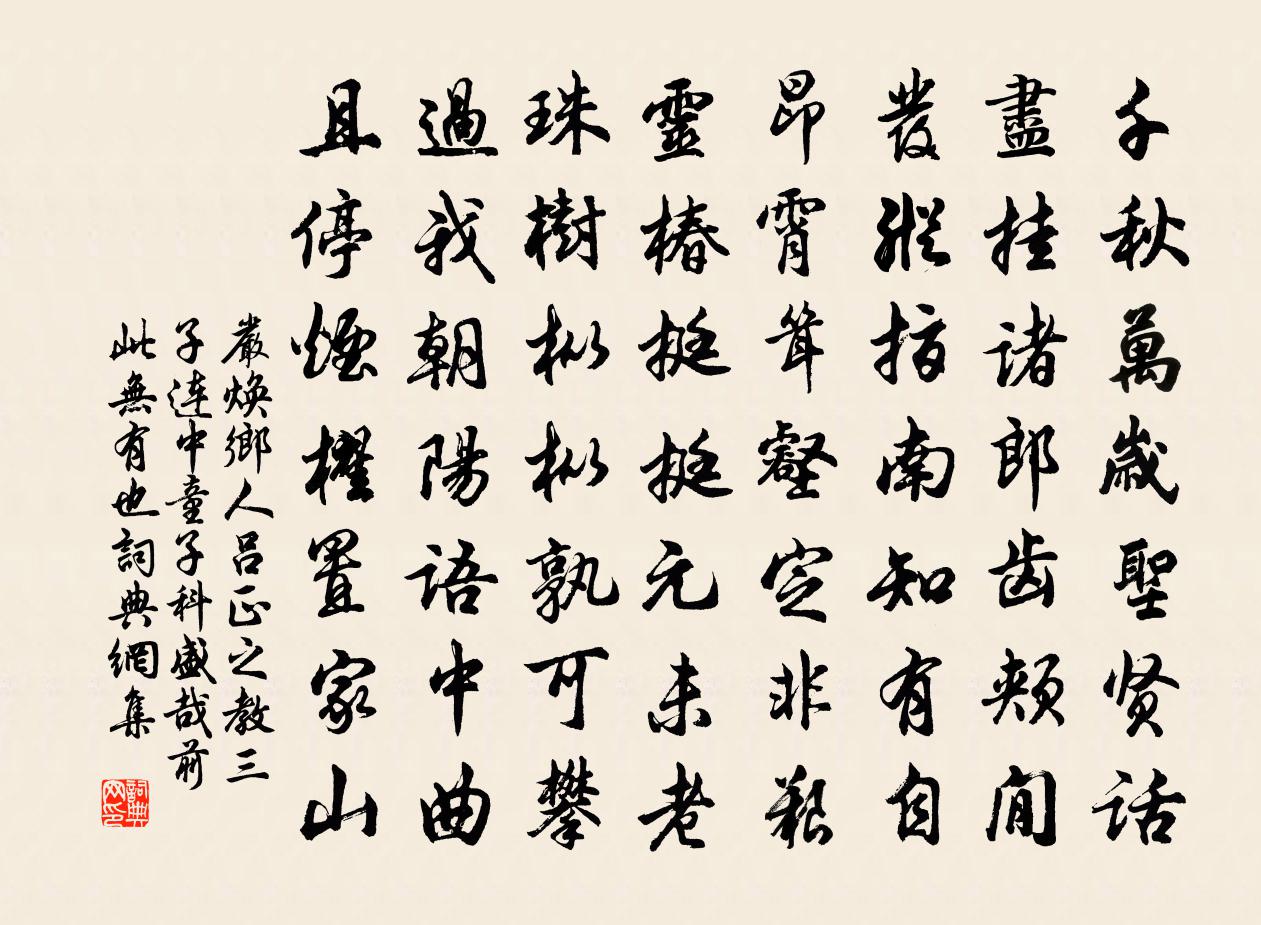 千秋萬歲聖賢話
盡挂諸郎齒頰間
發縱指南知有自
昂霄聳壑定非艱
靈椿挺挺元未老
珠樹樅樅孰可攀
過我朝陽語中曲
且停煙櫂置家山
嚴煥鄉人呂正之教三
子連中童子科盛哉前
此無有也詞典網集
詞典网印